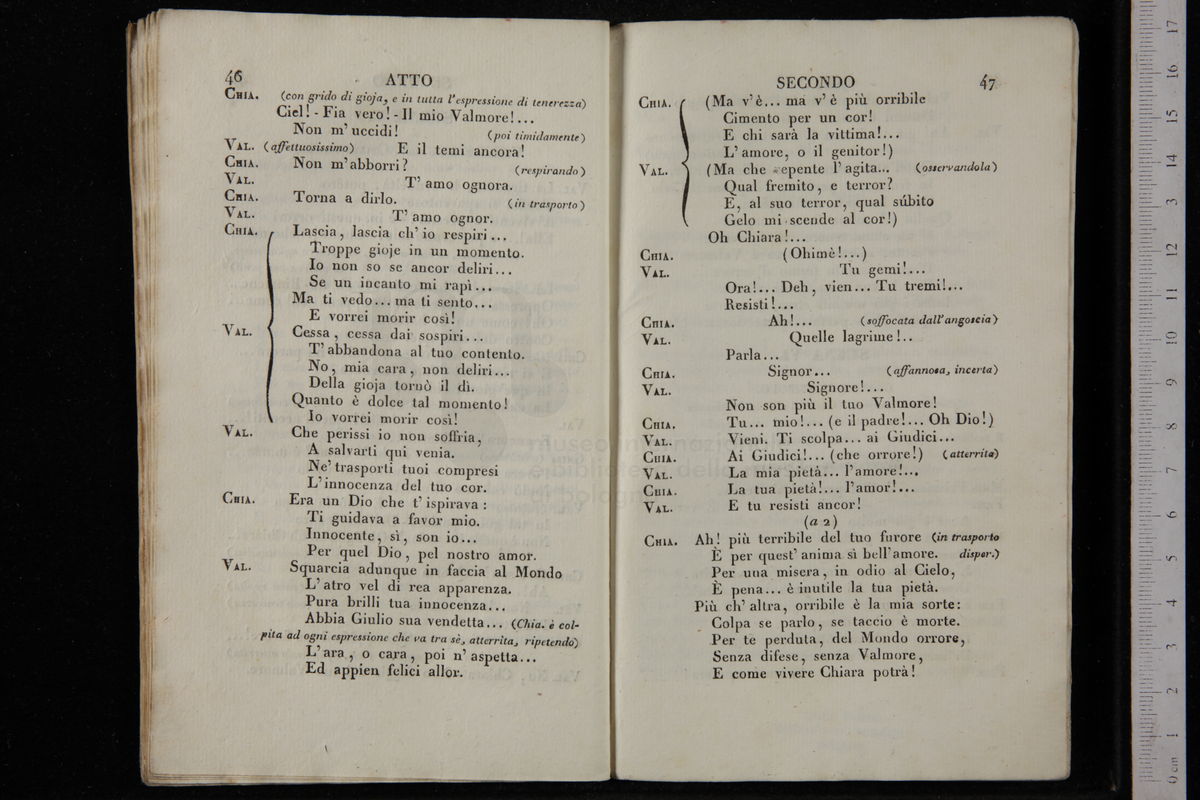 46
ATTO
CHIA. (con grido di gioja, e in tutta l'espressione di tenerezza)
Ciel! - Fia vero! - Il mio Valmore!...
Non m'uccidi! (poi timidamente)
VAL. (affettuosissimo) E il temi ancora!
CHIA. Non m'abborri? (respirando)
VAL. T'amo ognora.
CHIA. Torna a dirlo. (in trasporto)
VAL. T'amo ognor.
CHIA. Lascia, lascia ch'io respiri...
Troppe gioje in un momento.
Io non so se ancor deliri...
Se un incanto mi rapì...
Ma ti vedo... ma ti sento...
E vorrei morir così!
VAL. Cessa, cessa dai sospiri...
T'abbandona al tuo contento.
No, mia cara, non deliri...
Della gioja tornò il dì.
Quanto è dolce tal momento!
Io vorrei morir così!
VAL. Che perissi io non soffria,
A salvarti qui venia.
Ne' trasporti tuoi compresi
L'innocenza del tuo cor.
CHIA. Era un Dio che t'ispirava:
Ti guidava a favor mio.
Innocente, sì, son io...
Per quel Dio, pel nostro amor.
VAL. Squarcia adunque in faccia al Mondo
L'atro vel di rea apparenza.
Pura brilli tua innocenza...
Abbia Giulio sua vendetta... (Chia. è col-
pita ad ogni espressione che va tra sè, atterrita, ripetendo)
L'ara, o cara, poi n'aspetta...
Ed appien felici allor.
SECONDO
47
CHIA. (Ma v'è... ma v'è più orribile
Cimento per un cor!
E chi sarà la vittima!...
L'amore, o il genitor!)
VAL. (Ma che repente l'agita... (osservandola)
Qual fremito, e terror?
E, al suo terror, qual sùbito
Gelo mi scende al cor!)
Oh Chiara!...
CHIA. (Ohimè!...)
VAL. Tu gemi!...
Ora!... Deh, vien... Tu tremi!...
Resisti!...
CHIA. Ah!... (soffocata dall'angoscia)
VAL. Quelle lagrime!..
Parla...
CHIA. Signor... (affannosa, incerta)
VAL. Signore!...
Non son più il tuo Valmore!
CHIA. Tu... mio!... (e il padre!... Oh Dio!)
VAL. Vieni. Ti scolpa... ai Giudici...
CHIA. Ai Giudici!... (che orrore!) (atterrita)
VAL. La mia pietà... l'amore!...
CHIA. La tua pietà!... l'amor!...
VAL. E tu resisti ancor!
(a 2)
CHIA. Ah! più terribile del tuo furore (in trasporto
È per quest'anima sì bell'amore. disper.)
Per una misera, in odio al Cielo,
È pena... è inutile la tua pietà.
Più ch'altra, orribile è la mia sorte:
Colpa se parlo, se taccio è morte.
Per te perduta, del Mondo orrore,
Senza difese, senza Valmore,
E come vivere Chiara potrà!